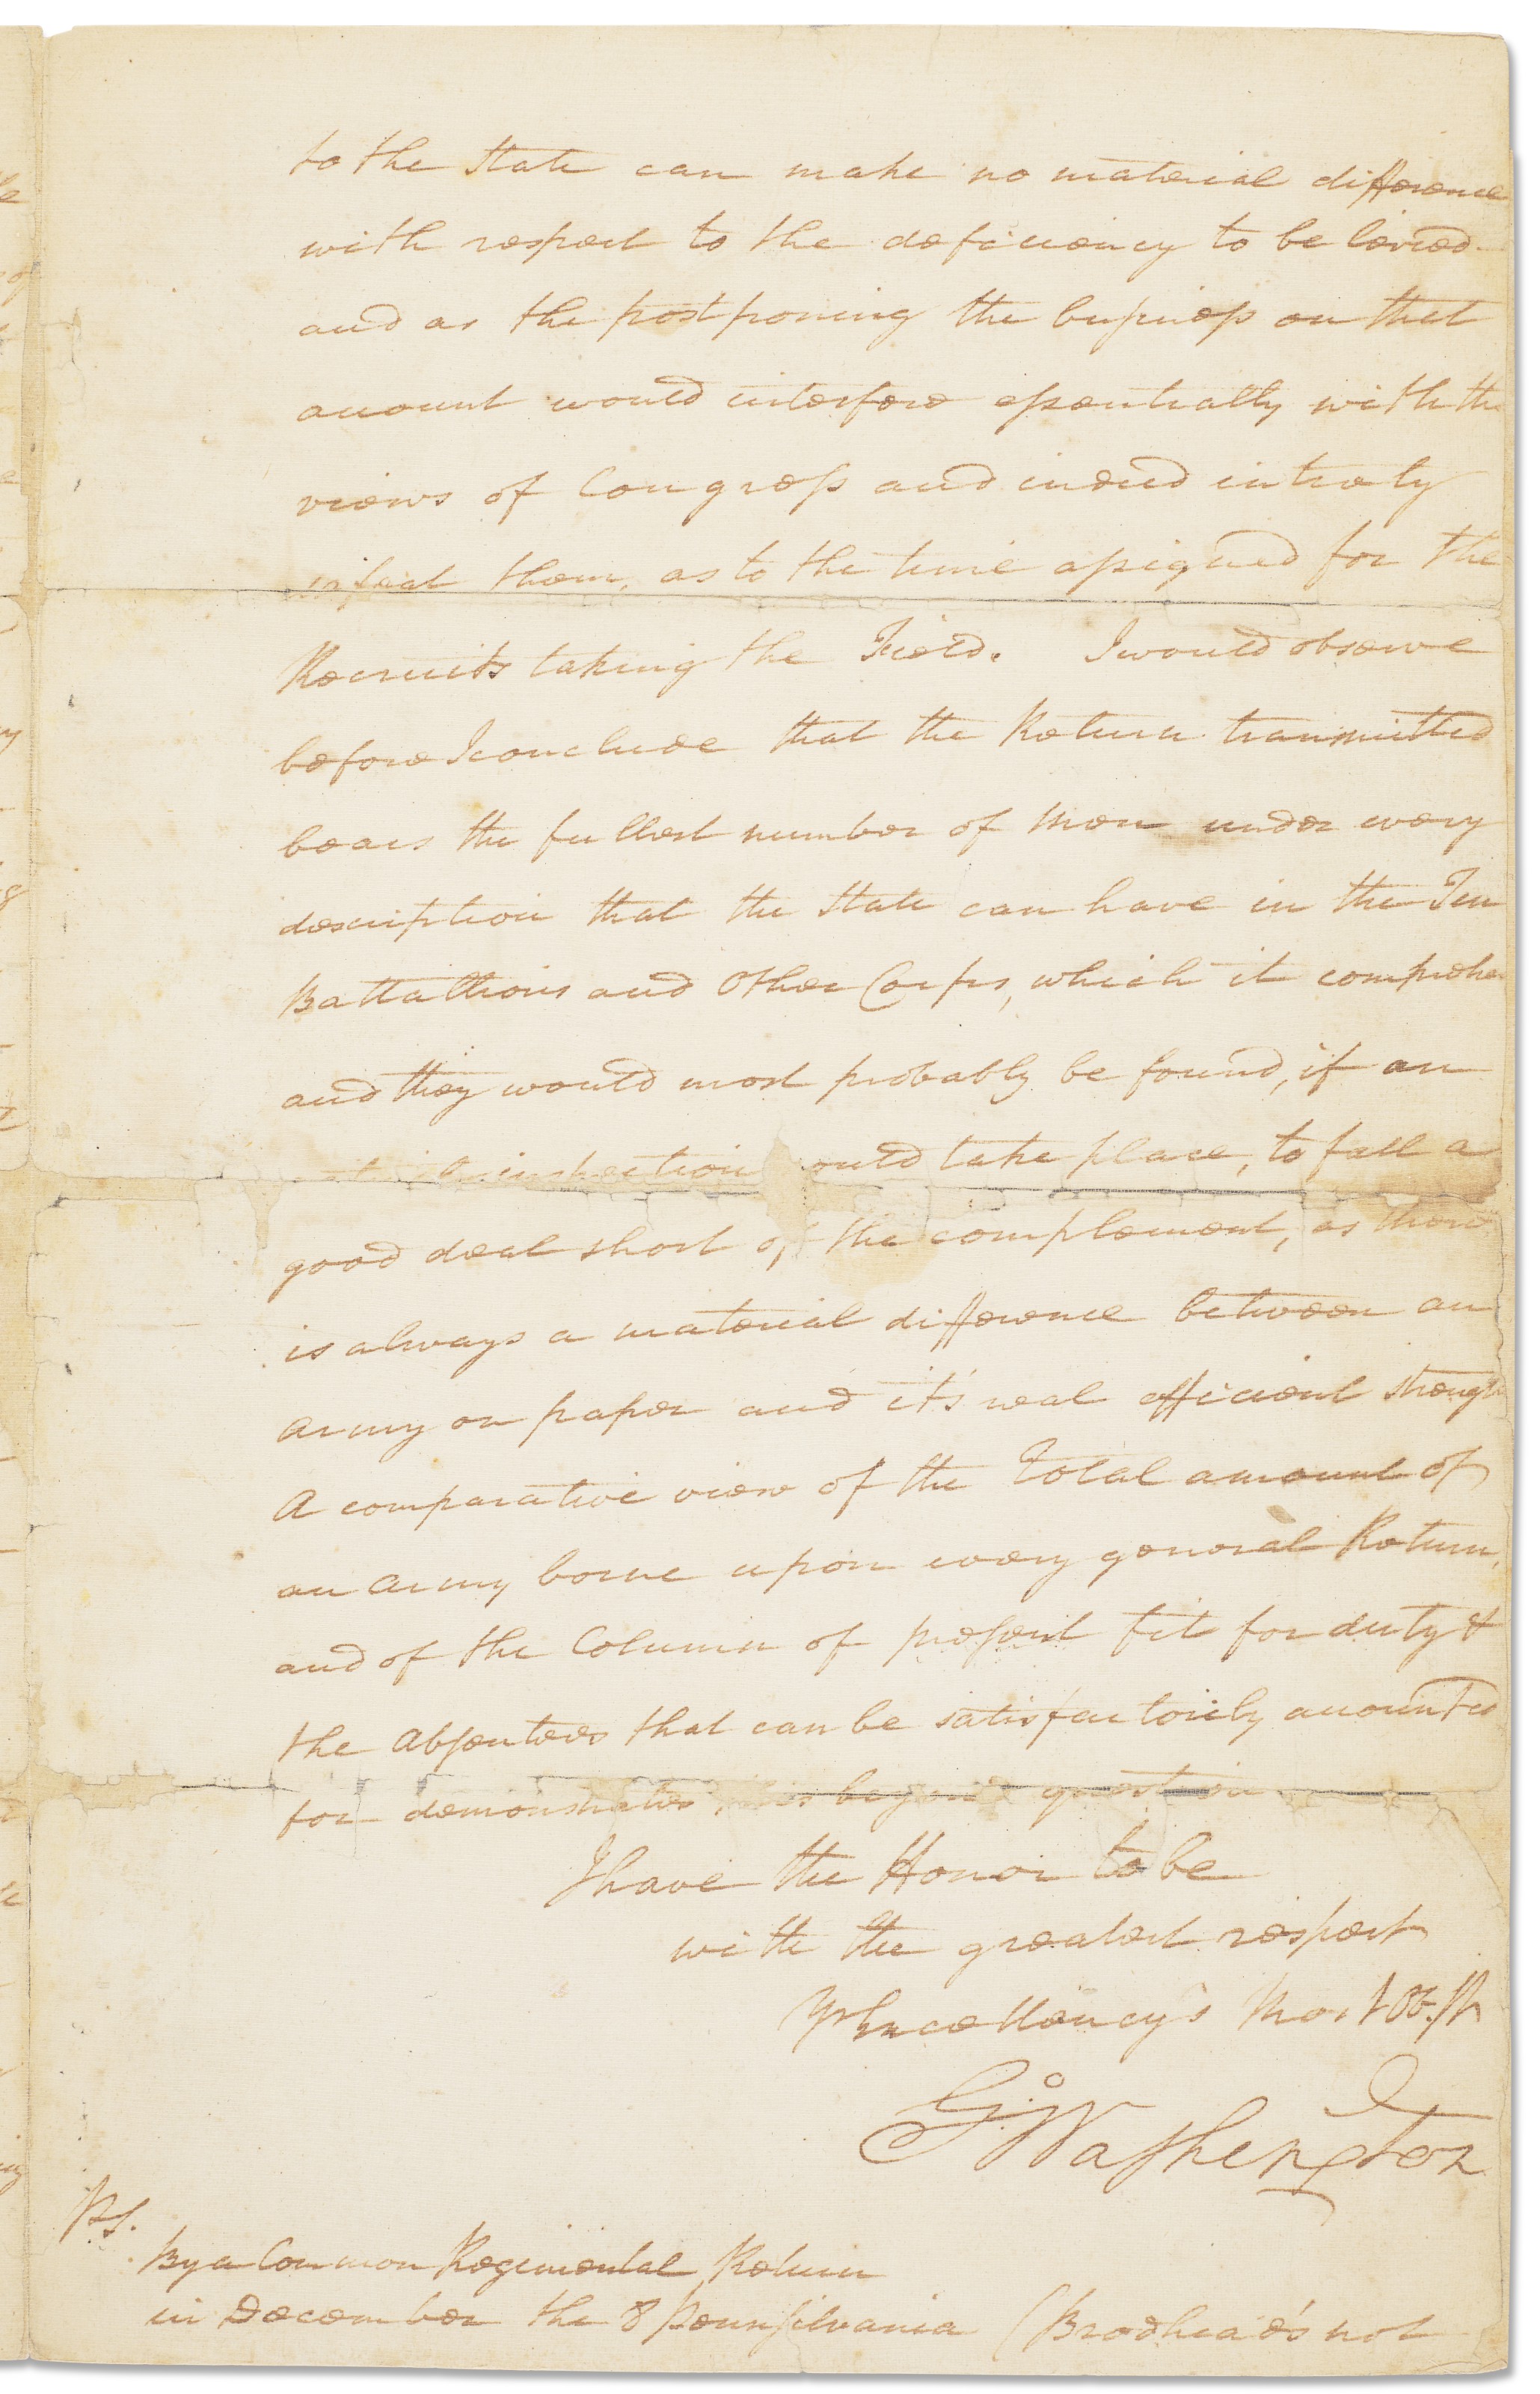 to the State can make no material difference
with respect to the deficiency to be levied
and as the postponing the business on that
account would interfere essentially with the
views of Congress and indeed intirely
them, as to the time assigned for the
Recruits taking the Field. I would observe
before I conclude that the Return transmitted
bears the fullest number of Men under every
description that the State can have in the Ten
Battallions and Other Corps, which it comprehen
and they would most probably be found, if an
inspection ould take place, to fall a
good deal short of the complement, as there
is always a material difference between an
Army on paper and it's real efficient strength
A comparative view of the Total amount of
an Army borne upon every general Return,
and of the Column of present fit for duty &
the Absentees that can be satisfactorily accounted
for demonstrates, this beyond question
I have the Honor to be
with the greatest respect
Yr Excellency's Most Ob. St
Go: Washington
P.S.
By a Common Regimental Return
in December the 8 Pennsilvania (Brodhead's not